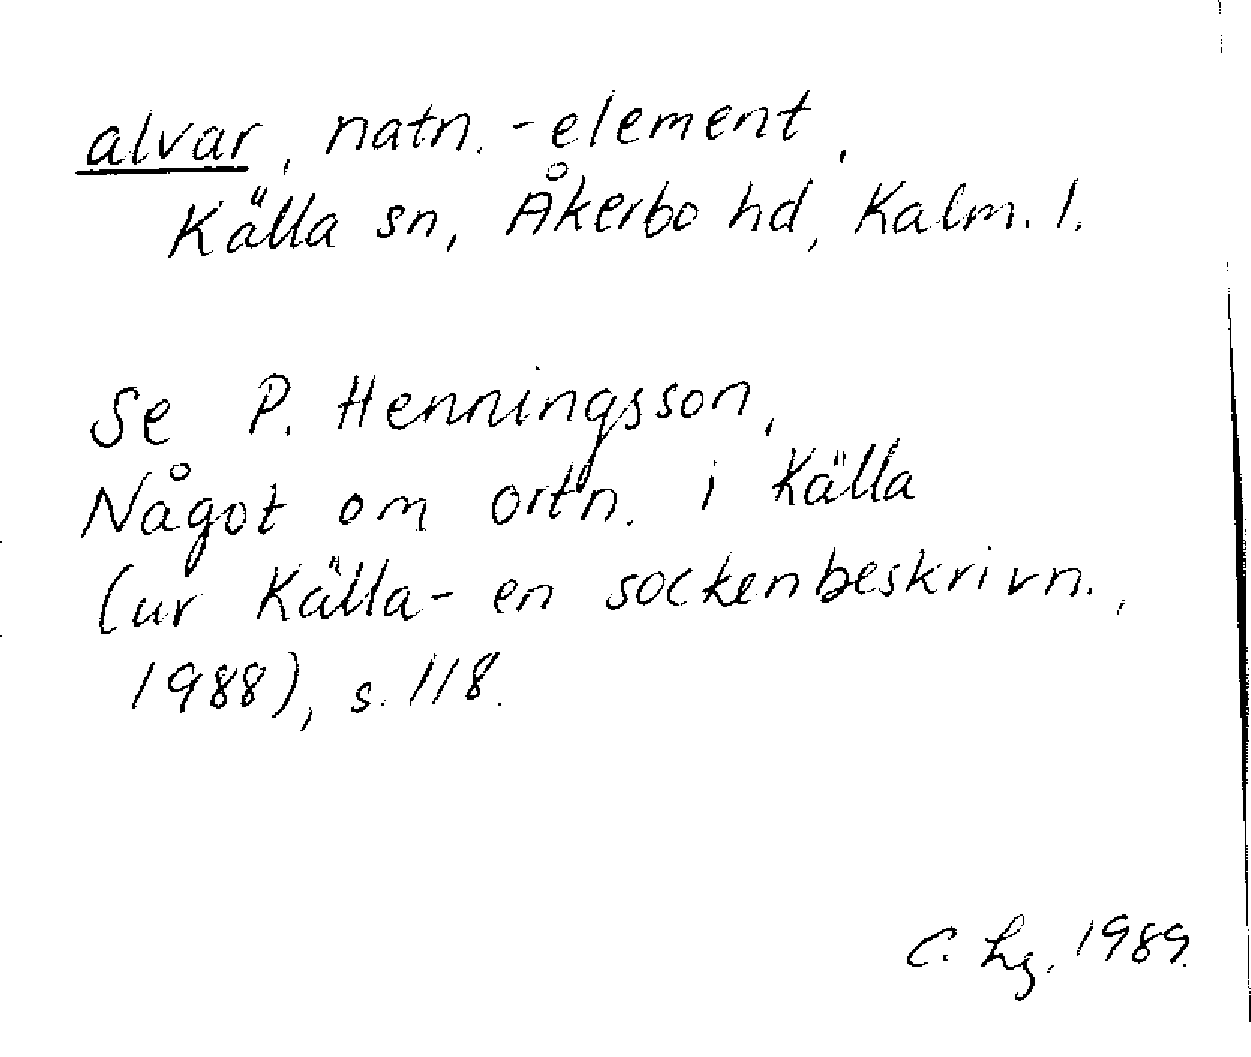 alvar, natn.-element,
Källa sn, Åkerbo hd, Kalm. l.
Se P. Henningsson,
Något om ortn. i Källa
(ur Källa- en sockenbeskrivn.,
1988), s. 118.
C. Lg. 1989.